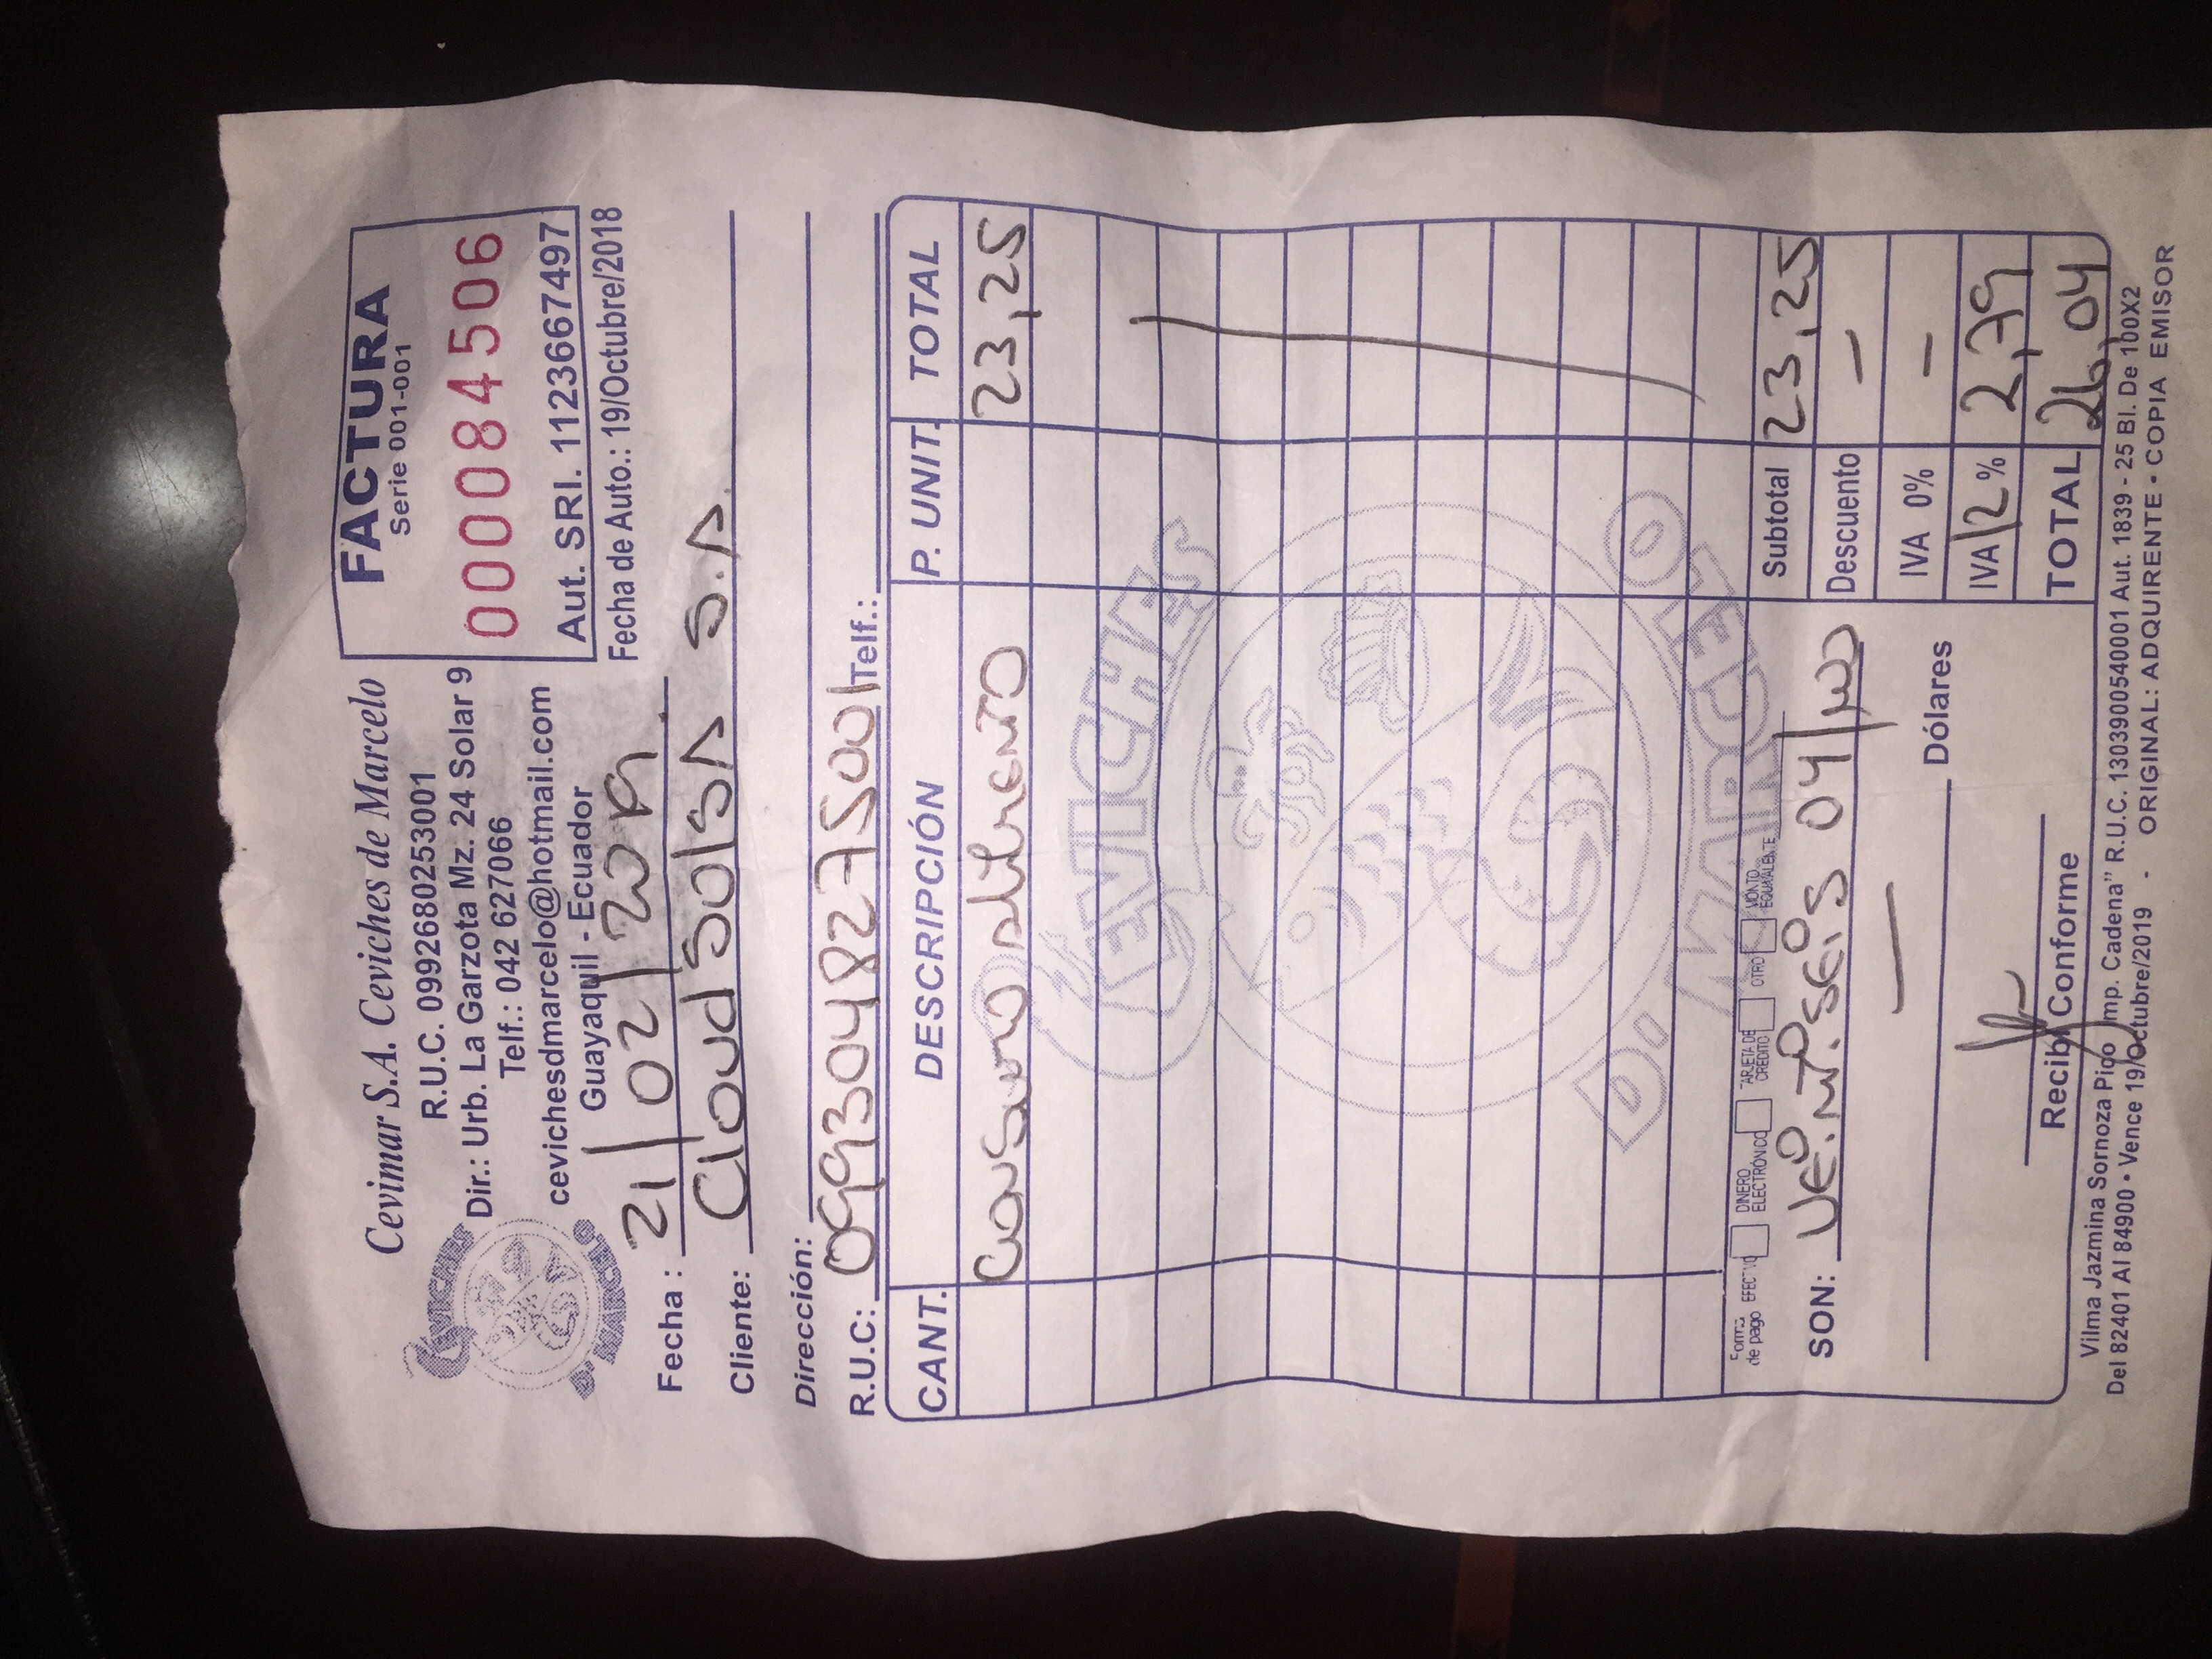 Cevimar S.A. Ceviches de Marcelo
R.U.C. 0992680253001
Dir.: Urb. La Garzota Mz. 24 Solar 9
Telf.: 042 627066
cevichesdmarcelo@hotmail.com
Guayaquil - Ecuador
CEVICHES
D' MARCELO
FACTURA
Serie 001-001
000084506
Aut. SRI. 1123667497
Fecha de Auto.: 19/Octubre/2018
Fecha : 21/02/2019.
Cliente: CloudSolSA S.A.
Dirección:
R.U.C: 0993048275001 Telf.:
CANT. DESCRIPCIÓN P. UNIT. TOTAL
Consumo alimento 23,25
CEVICHES
D' MARCELO
Forma de pago EFECTIVO DINERO ELECTRÓNICO TARJETA DE CRÉDITO OTRO MONTO EQUIVALENTE
Subtotal 23,25
SON: VEiNTiSEiS 04/100
Descuento —
IVA 0% —
Dólares
IVA 12 % 2,79
TOTAL 26,04
Recibí Conforme
Vilma Jazmina Sornoza Pico Imp. Cadena" R.U.C. 1303900540001 Aut. 1839 - 25 Bl. De 100X2
Del 82401 Al 84900 • Vence 19/Octubre/2019 - ORIGINAL: ADQUIRENTE • COPIA EMISOR